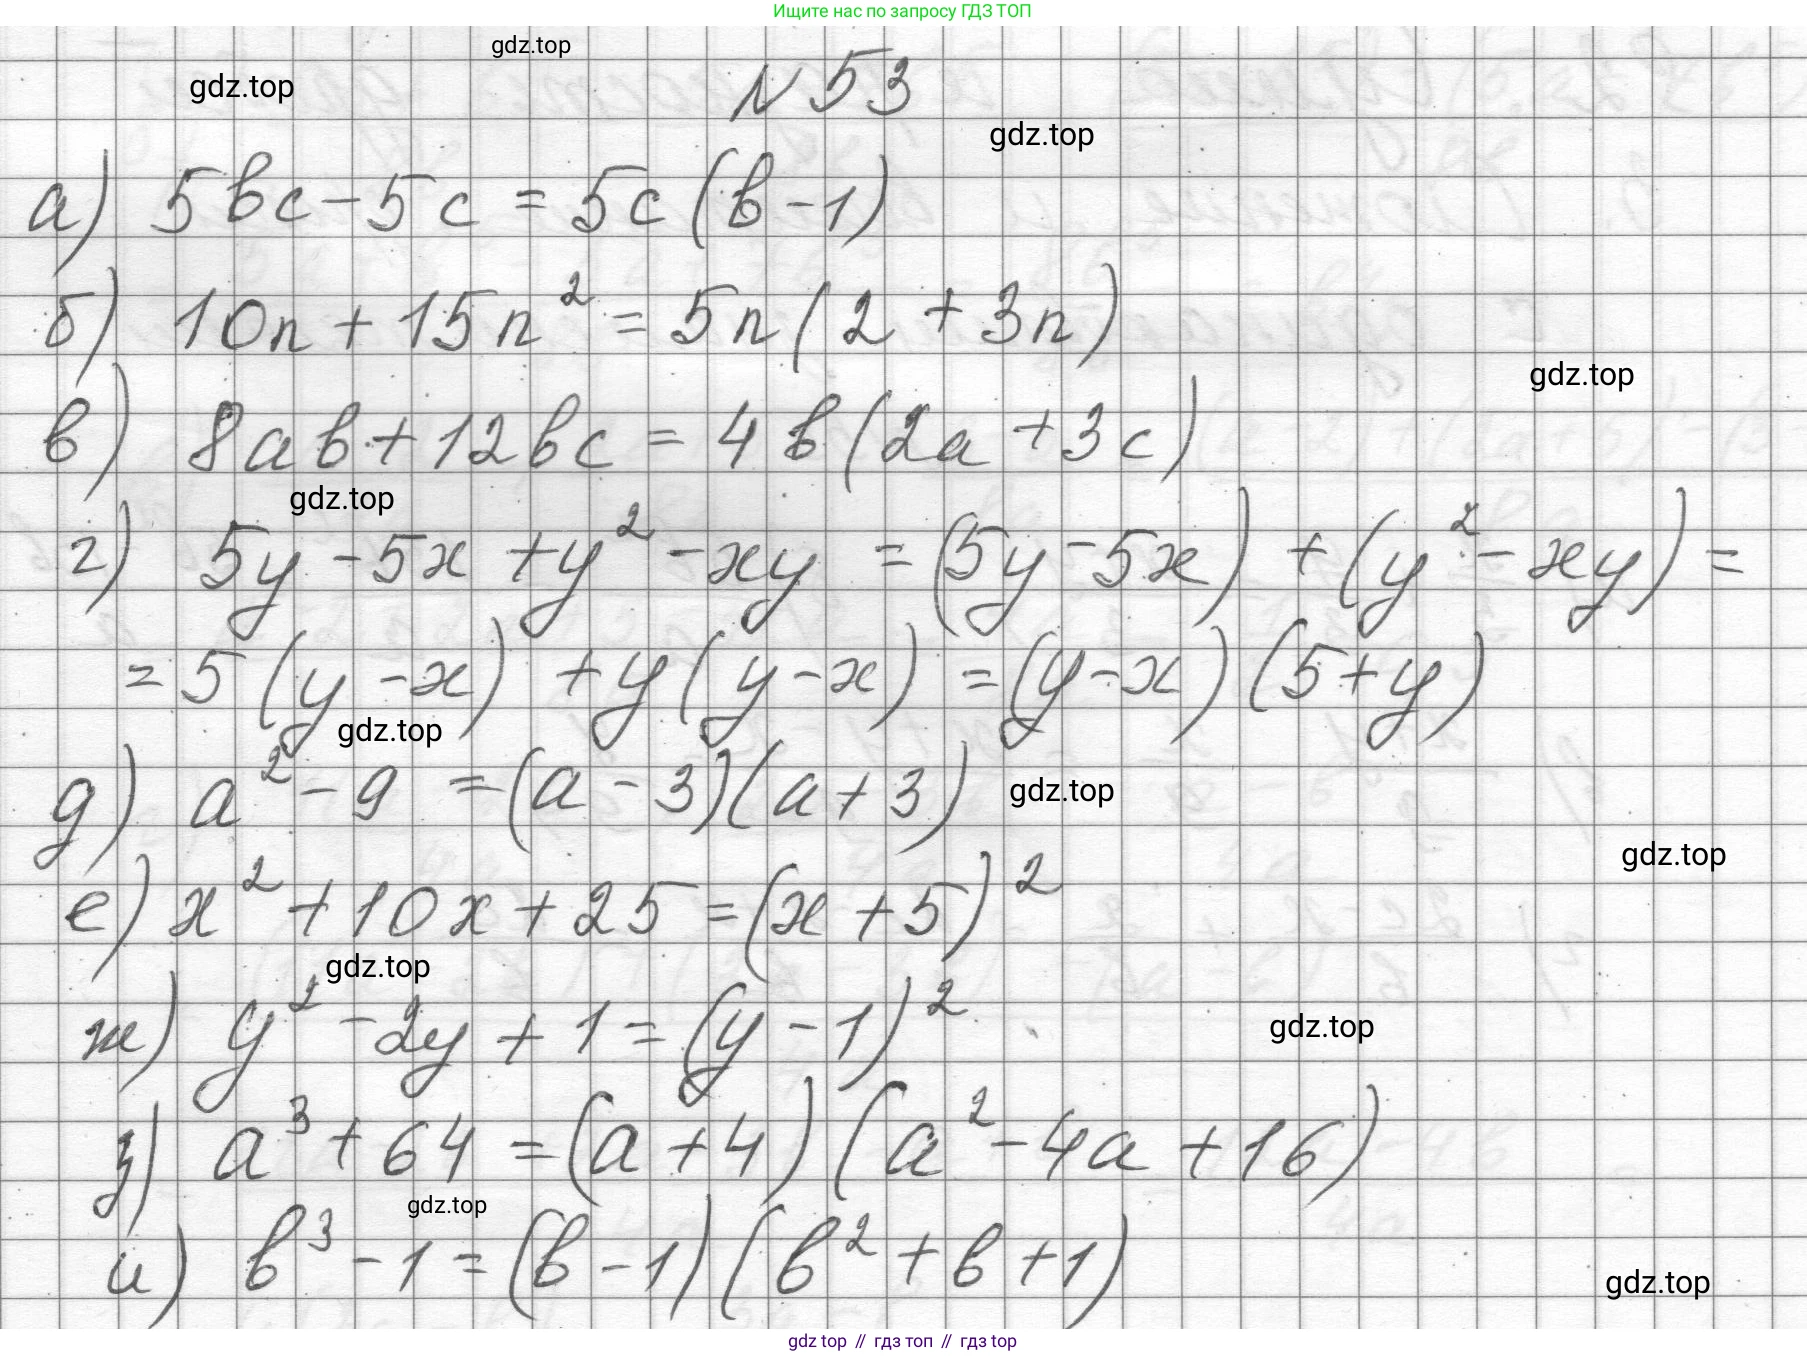 Ищите нас по запросу ГДЗ ТОП
gdz.top
gdz.top
N 53
gdz.top
а) 5bc - 5c = 5c (b - 1)
б) 10n + 15n² = 5n (2 + 3n)
gdz.top
в) 8ab + 12bc = 4b (2a + 3c)
gdz.top
г) 5y - 5x + y² - xy = (5y - 5x) + (y² - xy) =
= 5 (y - x) + y (y - x) = (y - x) (5 + y)
gdz.top
д) a² - 9 = (a - 3)(a + 3)
gdz.top
gdz.top
е) x² + 10x + 25 = (x + 5)²
gdz.top
ж) y² - 2y + 1 = (y - 1)²
gdz.top
з) a³ + 64 = (a + 4) (a² - 4a + 16)
gdz.top
и) b³ - 1 = (b - 1) (b² + b + 1)
gdz.top
gdz top // гдз топ // гдз top